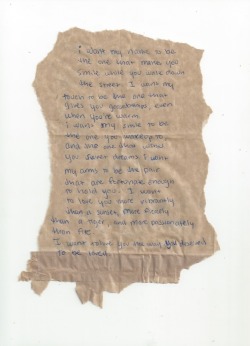 i want my name to be
the one that makes you
smile while you walk down
the street. I want my
touch to be the one that
gives you goosebumps, even
when you're warm
i want my smile to be
the one you
and the one that
you sweet dreams I want
my arms to be the pair
that are fortunate enough
to hold you. I want
to love you more vibrantly
than a sunset, more fiercely
than a tiger, and more passionately
than fire.
I want to love you the way you deserved
to be loved.